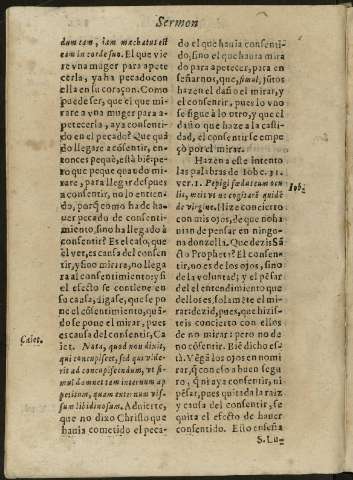 Sermon
dum eam, iam mœchatus est
eam in corde suo. El que vie
re vna muger para apete
cerla, ya ha pecado con
ella en su coraçon. Como
puede ser, que el que mi-
rare a vna muger para a-
petecerla, aya consenti-
do en el pecado? Que quã
do llegare a cõsentir, en-
tonces peque, està biẽ: pe-
ro que peque quando mi-
rare, para llegar despues
a consentir, no lo entien-
do, porq̃ como ha de ha-
uer pecado de consenti-
miento, sino ha llegado à
consentir? Es el caso, que
el ver, es causa del consen
tir, y sino mirara, no llega
ra al consentimiento; y si
el efecto se contiene en
su causa, digase, que se po
ne el cõsentimiento, quã-
do se pone el mirar, pues
es causa del consentir, Ca
iet. Nota, quod non dixit,
qui concupiscet, sed qui vide-
rit ad concupiscendum, vt si-
mul damnet tam internum ap
petitum, quam externum vi-
sum libidinosum. Aduierte,
que no dixo Christo que
hauia cometido el peca-
Caiet.
do el que hauia consenti-
do, sino el que hauia mira
do para apetecer, para en
señarnos, que, simul, jũtos
hazen el daño el mirar, y
el consentir, pues lo vno
se sigue à lo otro, y que el
daño que haze a la casti-
dad, el consentir se empe
çò por el mirar.
Hazen a este intento
las palabras de Iob c. 31.
ver. 1. Pepigi fœdus cum ocu
lis, meis vt ne cogitarẽ quidẽ
de virgine. Hize concierto
con mis ojos, de que no ha
uian de pensar en ningu-
na donzella. Que dezis Sã
cto Propheta? El consen-
tir, no es de los ojos, sino
de la voluntad; y el pẽsar
del el entendimiento que
dellos es, solamẽte el mi-
rar: dezid, pues, que hizis-
teis concierto con ellos
de no mirar; pero no de
no cõsentir. Biẽ dicho es-
tà. Vẽgã los ojos en nomi
rar, q̃ con esso a buen segu
ro, q̃ ni aya consentir, ni
pẽsar, pues quitada la raiz
y causa del consentir, se
quita el efecto de hauer
consentido. Esto enseña
Iob.
S. Lu-